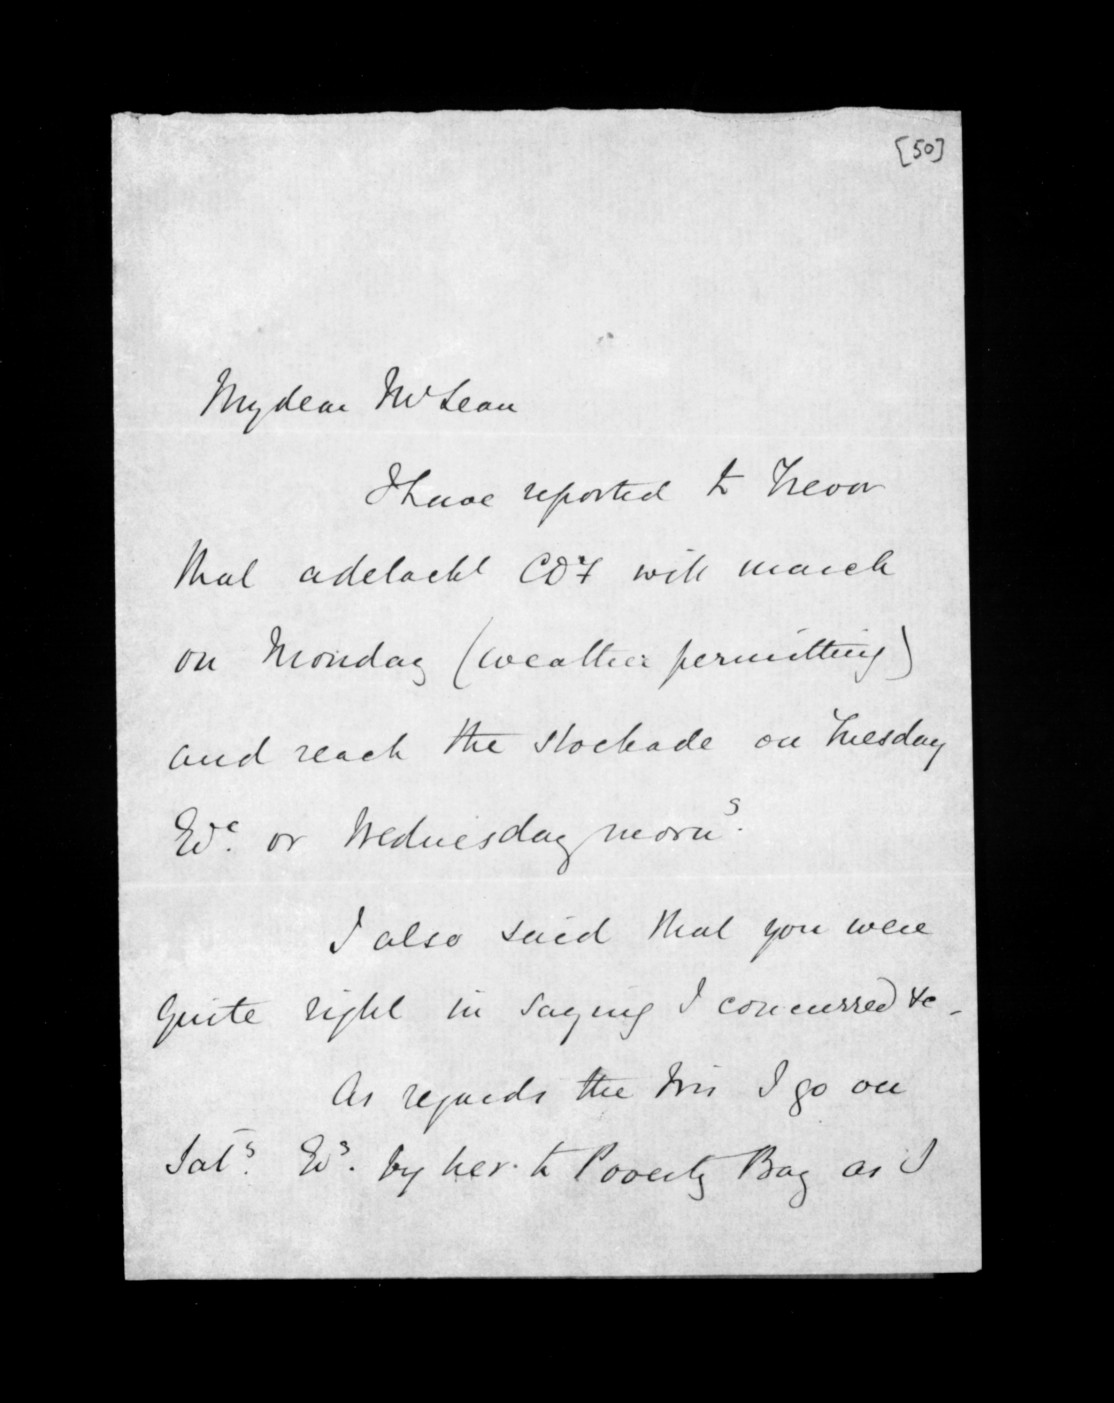 [50]
My dear McLean
I have reported to Trevor
that a detacht CDF will march
on Monday (weather permitting)
and reach the stockade on Tuesday
Evg. or Wednesday morng.
I also said that you were
quite right in saying I concurred &c -
As regards the Iris I go on
Satg. Evg. by her to Poverty Bay as I